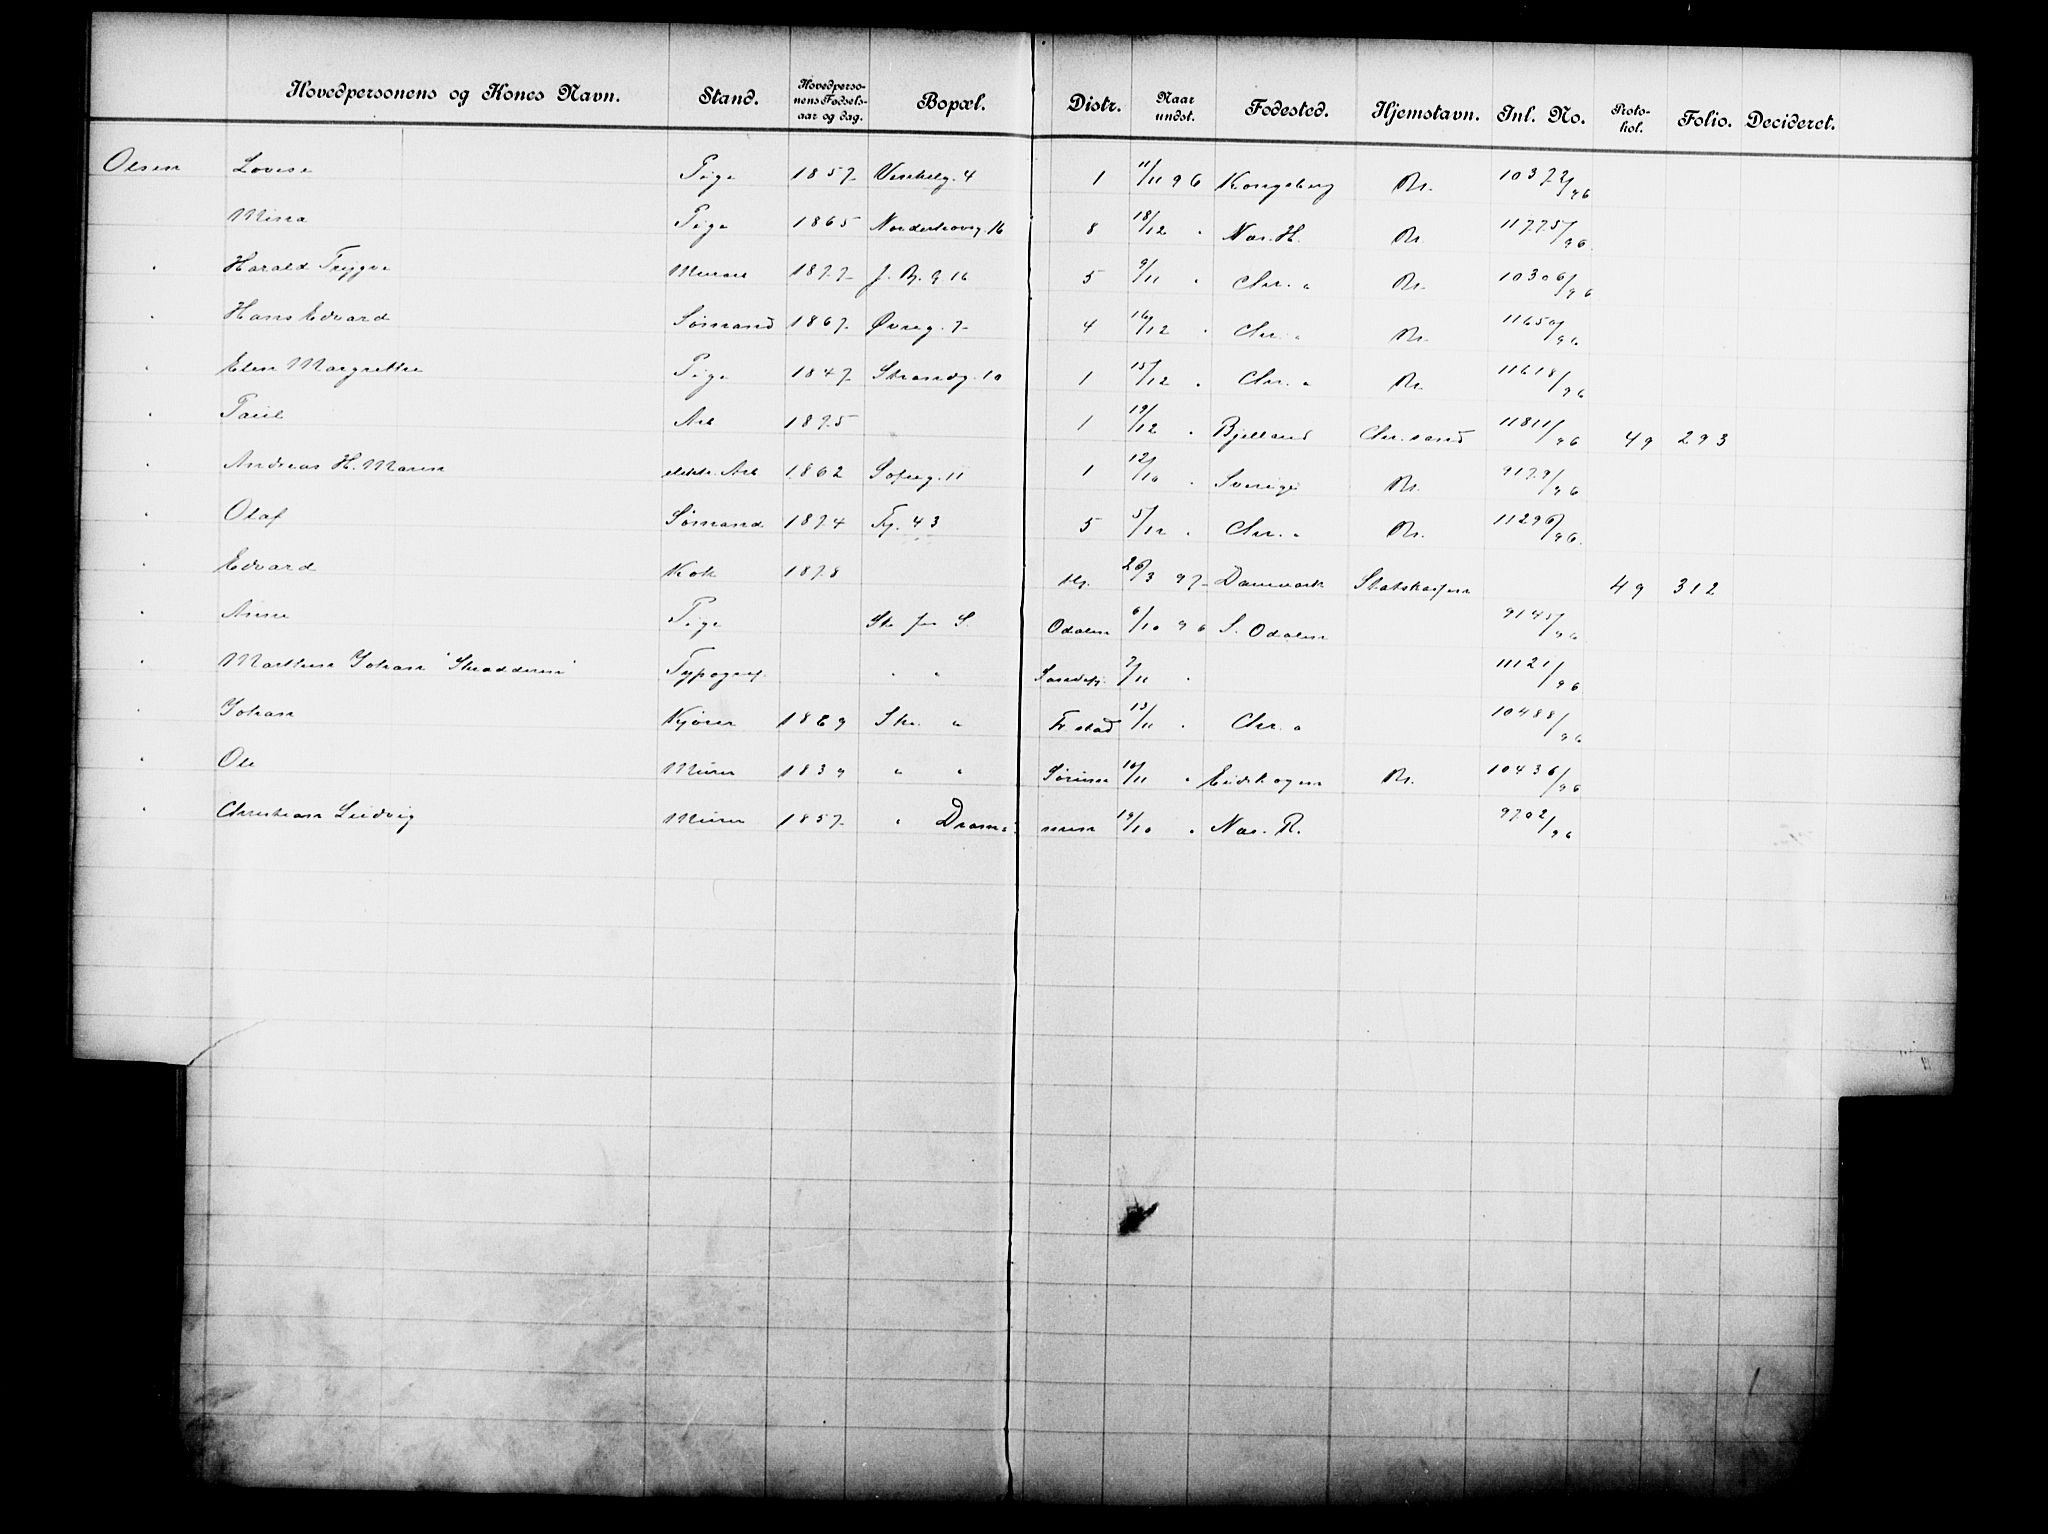 Hovedpersonens og Kones Navn. Stand. Hovedperso-nens Fødsels-aar og dag. Bopæl. Distr. Naar undst. Fødested. Hjemstavn. Inl. No. Proto-kol. Folio. Decideret.
Olsen Lovise Pige 1857 4 1 11/11 96 Kongsberg Kr. 10372/96
Mina Pige 1865 16 8 18/12 " Nes. H. Kr. 11775/96
" Harald Trygve Murer 1877 J. B. g 16 5 9/11 " Chr. a Kr. 10306/96
" Hans Edvard Sømand 1867 Øvreg. 7 4 16/12 " Chr. a Kr. 11650/96
" Elen Margrethe Pige 1847 Strandg. 10 1 15/12 " Chr. a Kr. 11618/96
" Paul Arb 1875 1 19/12 " Bjelland Chr. sand 11811/96 49 293
" Andreas H. Maren elektr. Arb 1862 Sofieg. 11 1 12/10 " Sverige Kr. 9179/96
" Olaf Sømand 1874 Tg. 43 5 5/12 " Chr. a Kr. 11296/96
" Edvard Kok 1878 26/3 97 Danmark Statskassen 49 312
" Anne Pige Skr for S. Odalen 6/10 96 S. Odalen 9145/96
" Johan Typograf " " Sandefj. 7/11 " 11121/96
" Johan Kjører 1869 Skr. " Fr. stad 13/11 " Chr. a 10488/96
" Ole Murer 1839 " " Sørum 10/11 " Eidskogen Kr. 10436/96
" Christian Ludvig Murer 1857 " Drammen 19/10 " Nes. R. 9702/96